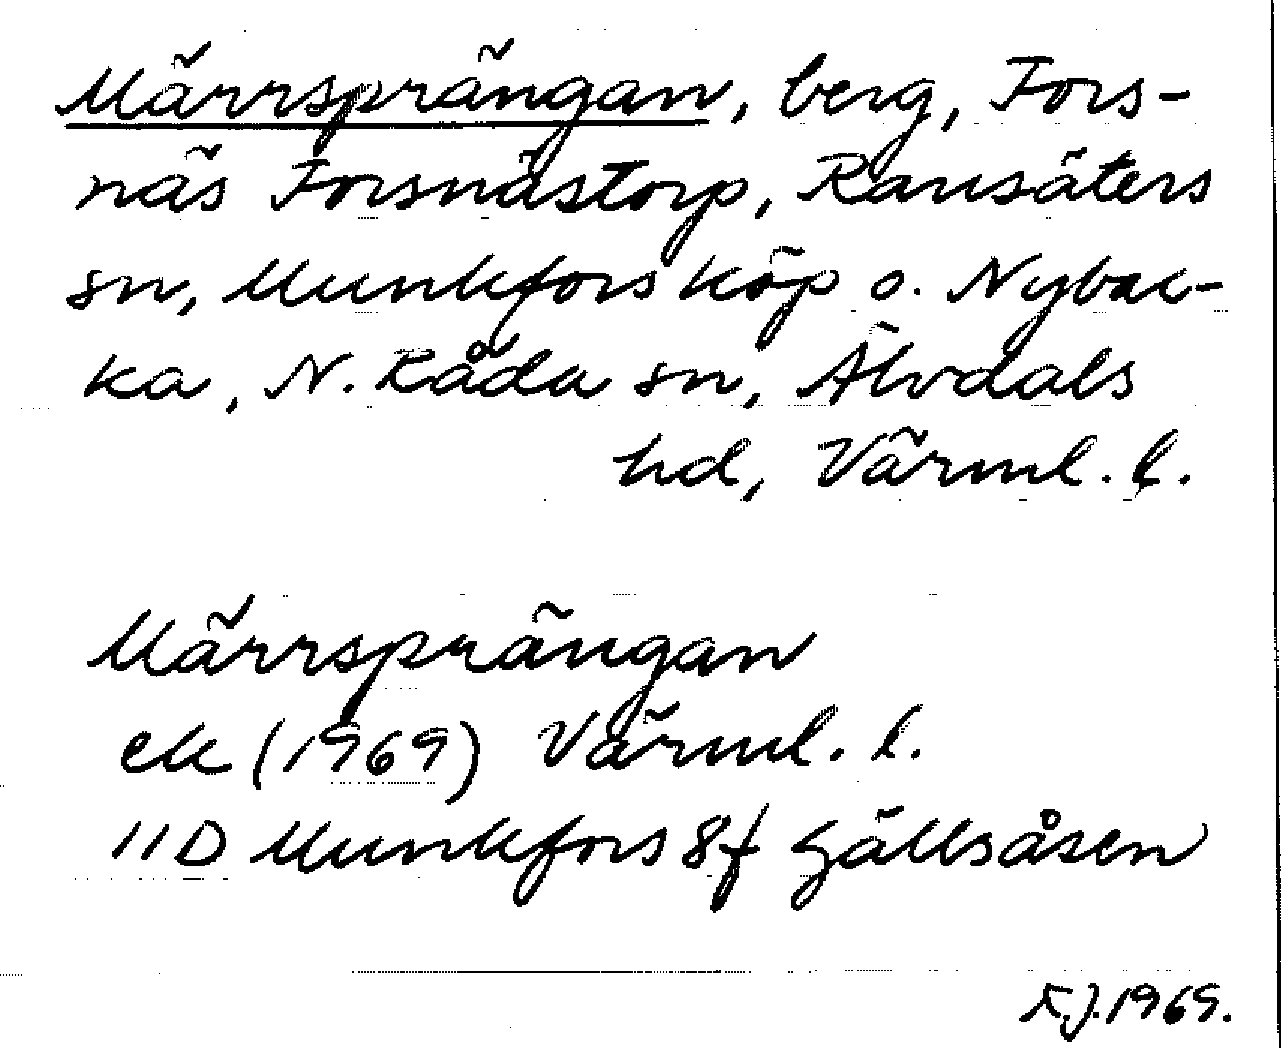 Märrsprängan, berg, Fors-
näs Forsnästorp, Ransäters
sn, Munkfors köp o. Nybac-
ka, N. Råda sn, Älvdals
hd, Värml. l.
Märrsprängan
ek (1969) Värml. l.
11D Munkfors 8f Gällsåsen
K.J. 1969.